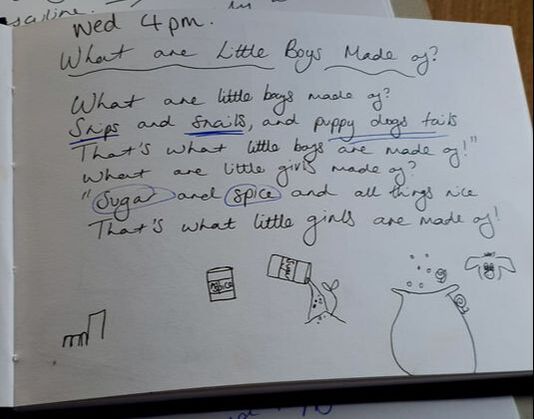 Wed 4pm.
What are Little Boys Made of?
What are little boys made of?
Snips and snails, and puppy dogs tails
That's what little boys are made of!"
What are little girls made of?
"Sugar and spice and all things nice
That's what little girls are made of!
spice